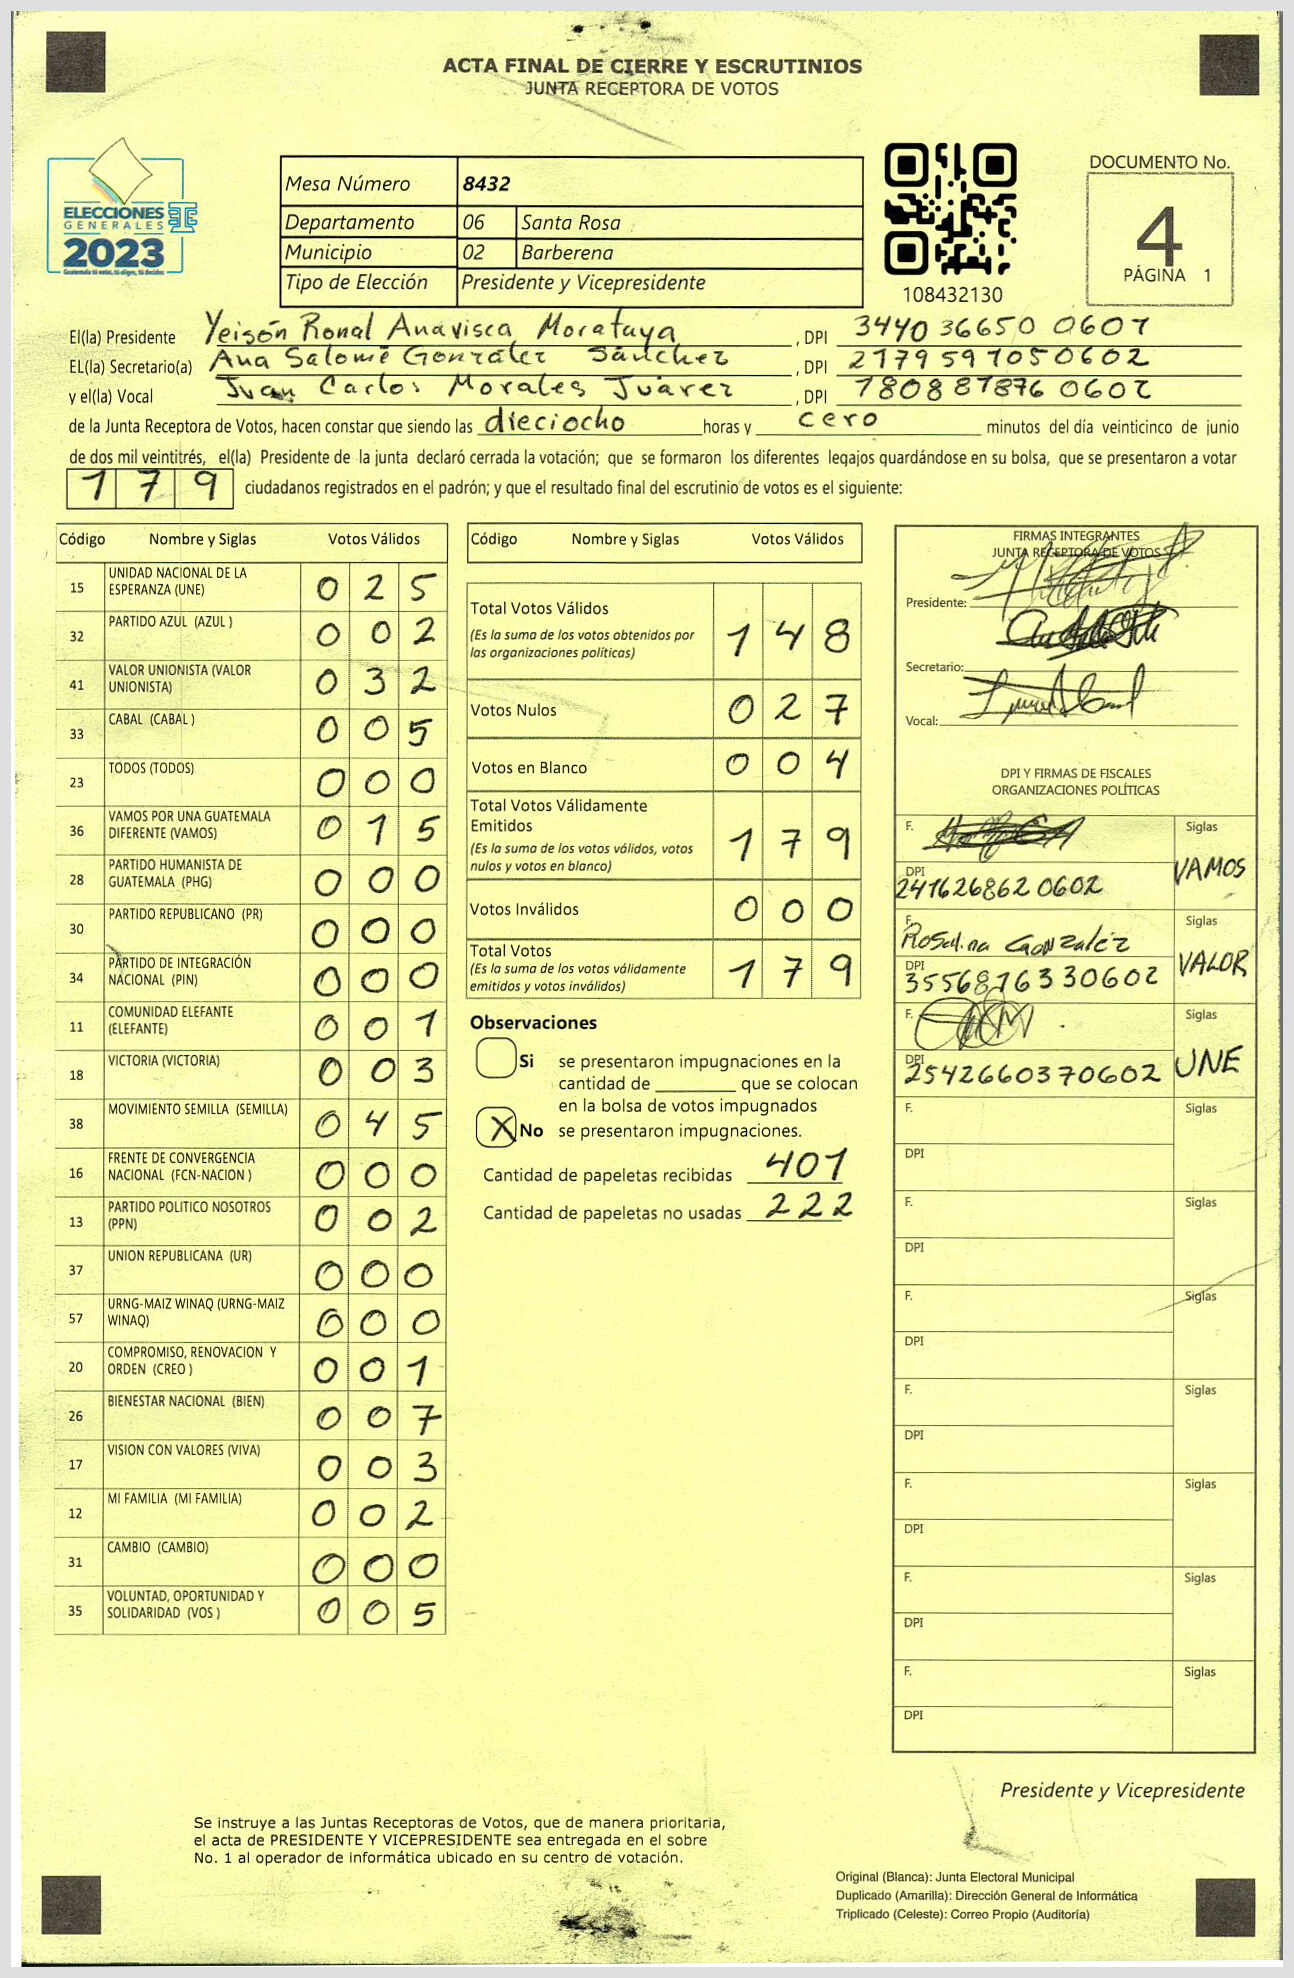 ACTA FINAL DE CIERRE Y ESCRUTINIOS
JUNTA RECEPTORA DE VOTOS
ELECCIONES
GENERALES
2023
Guatemala tú votas, tú eliges, tú decides
Mesa Número 8432
Departamento 06 Santa Rosa
Municipio 02 Barberena
Tipo de Elección Presidente y Vicepresidente
108432130
DOCUMENTO No.
4
PÁGINA 1
El(la) Presidente Yeisón Ronal Anavisca Morataya, DPI 3440 36650 0601
EL(la) Secretario(a) Ana Salomé González Sánchez, DPI 2179 59105 0602
y el(la) Vocal Juan Carlos Morales Juárez, DPI 1808 81876 0602
de la Junta Receptora de Votos, hacen constar que siendo las dieciocho horas y cero minutos del día veinticinco de junio
de dos mil veintitrés, el(la) Presidente de la junta declaró cerrada la votación; que se formaron los diferentes legajos guardándose en su bolsa, que se presentaron a votar
179 ciudadanos registrados en el padrón; y que el resultado final del escrutinio de votos es el siguiente:
Código Nombre y Siglas Votos Válidos
15 UNIDAD NACIONAL DE LA ESPERANZA (UNE) 025
32 PARTIDO AZUL (AZUL ) 002
41 VALOR UNIONISTA (VALOR UNIONISTA) 032
33 CABAL (CABAL ) 005
23 TODOS (TODOS) 000
36 VAMOS POR UNA GUATEMALA DIFERENTE (VAMOS) 015
28 PARTIDO HUMANISTA DE GUATEMALA (PHG) 000
30 PARTIDO REPUBLICANO (PR) 000
34 PARTIDO DE INTEGRACIÓN NACIONAL (PIN) 000
11 COMUNIDAD ELEFANTE (ELEFANTE) 001
18 VICTORIA (VICTORIA) 003
38 MOVIMIENTO SEMILLA (SEMILLA) 045
16 FRENTE DE CONVERGENCIA NACIONAL (FCN-NACION ) 000
13 PARTIDO POLITICO NOSOTROS (PPN) 002
37 UNION REPUBLICANA (UR) 000
57 URNG-MAIZ WINAQ (URNG-MAIZ WINAQ) 000
20 COMPROMISO, RENOVACION Y ORDEN (CREO ) 001
26 BIENESTAR NACIONAL (BIEN) 007
17 VISION CON VALORES (VIVA) 003
12 MI FAMILIA (MI FAMILIA) 002
31 CAMBIO (CAMBIO) 000
35 VOLUNTAD, OPORTUNIDAD Y SOLIDARIDAD (VOS ) 005
Código Nombre y Siglas Votos Válidos
Total Votos Válidos 148
(Es la suma de los votos obtenidos por
las organizaciones políticas)
Votos Nulos 027
Votos en Blanco 004
Total Votos Válidamente
Emitidos 179
(Es la suma de los votos válidos, votos
nulos y votos en blanco)
Votos Inválidos 000
Total Votos 179
(Es la suma de los votos válidamente
emitidos y votos inválidos)
Observaciones
Si se presentaron impugnaciones en la
cantidad de ________ que se colocan
en la bolsa de votos impugnados
X No se presentaron impugnaciones.
Cantidad de papeletas recibidas 401
Cantidad de papeletas no usadas 222
FIRMAS INTEGRANTES
JUNTA RECEPTORA DE VOTOS
Presidente:
Secretario:
Vocal:
DPI Y FIRMAS DE FISCALES
ORGANIZACIONES POLÍTICAS
F. Siglas VAMOS
DPI 241626862 0602
F. Rosalina González Siglas VALOR
DPI 3556876330602
F. Siglas UNE
DPI 2542660370602
F. Siglas
DPI
F. Siglas
DPI
F. Siglas
DPI
F. Siglas
DPI
F. Siglas
DPI
F. Siglas
DPI
F. Siglas
DPI
Presidente y Vicepresidente
Se instruye a las Juntas Receptoras de Votos, que de manera prioritaria,
el acta de PRESIDENTE Y VICEPRESIDENTE sea entregada en el sobre
No. 1 al operador de informática ubicado en su centro de votación.
Original (Blanca): Junta Electoral Municipal
Duplicado (Amarilla): Dirección General de Informática
Triplicado (Celeste): Correo Propio (Auditoría)